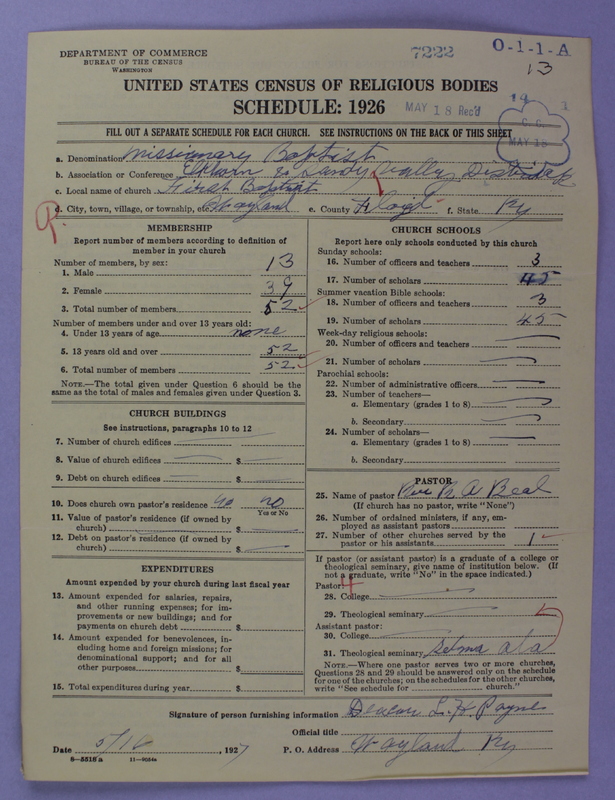 DEPARTMENT OF COMMERCE
BUREAU OF THE CENSUS
WASHINGTON
7222
O-1-1-A
13
UNITED STATES CENSUS OF RELIGIOUS BODIES
SCHEDULE: 1926
MAY 18 Rec'd
C. C.
MAY 18
FILL OUT A SEPARATE SCHEDULE FOR EACH CHURCH. SEE INSTRUCTIONS ON THE BACK OF THIS SHEET
a. Denomination Missionary Baptist
b. Association or Conference Elkhorn & Sandy Vally District
c. Local name of church First Baptist
d. City, town, village, or township, etc. Wayland e. County Floyd f. State Ky
MEMBERSHIP
Report number of members according to definition of
member in your church
Number of members, by sex:
1. Male 13
2. Female 39
3. Total number of members 52
Number of members under and over 13 years old:
4. Under 13 years of age none
5. 13 years old and over 52
6. Total number of members 52
NOTE.—The total given under Question 6 should be
the same as the total of males and females given under Question 3.
CHURCH BUILDINGS
See instructions, paragraphs 10 to 12
7. Number of church edifices
8. Value of church edifices $
9. Debt on church edifices $
10. Does church own pastor's residence no no
Yes or No
11. Value of pastor's residence (if owned by
church) $
12. Debt on pastor's residence (if owned by
church) $
EXPENDITURES
Amount expended by your church during last fiscal year
13. Amount expended for salaries, repairs,
and other running expenses; for im-
provements or new buildings; and for
payments on church debt $
14. Amount expended for benevolences, in-
cluding home and foreign missions; for
denominational support; and for all
other purposes $
15. Total expenditures during year $
CHURCH SCHOOLS
Report here only schools conducted by this church
Sunday schools:
16. Number of officers and teachers 3
17. Number of scholars 45
Summer vacation Bible schools:
18. Number of officers and teachers 3
19. Number of scholars 45
Week-day religious schools:
20. Number of officers and teachers
21. Number of scholars
Parochial schools:
22. Number of administrative officers
23. Number of teachers—
a. Elementary (grades 1 to 8)
b. Secondary
24. Number of scholars—
a. Elementary (grades 1 to 8)
b. Secondary
PASTOR
25. Name of pastor Rev A Beal
(If church has no pastor, write "None")
26. Number of ordained ministers, if any, em-
ployed as assistant pastors
27. Number of other churches served by the
pastor or his assistants 1
If pastor (or assistant pastor) is a graduate of a college or
theological seminary, give name of institution below. (If
not a graduate, write "No" in the space indicated.)
Pastor:
28. College
29. Theological seminary
Assistant pastor:
30. College
31. Theological seminary Selma ala
NOTE.—Where one pastor serves two or more churches,
Questions 28 and 29 should be answered only on the schedule
for one of the churches; on the schedules for the other churches,
write "See schedule for church."
Signature of person furnishing information Deacon L. H. Payne
Official title
Date 5/16, 1927 P. O. Address Wayland Ky
8-5518 a 11-9024a